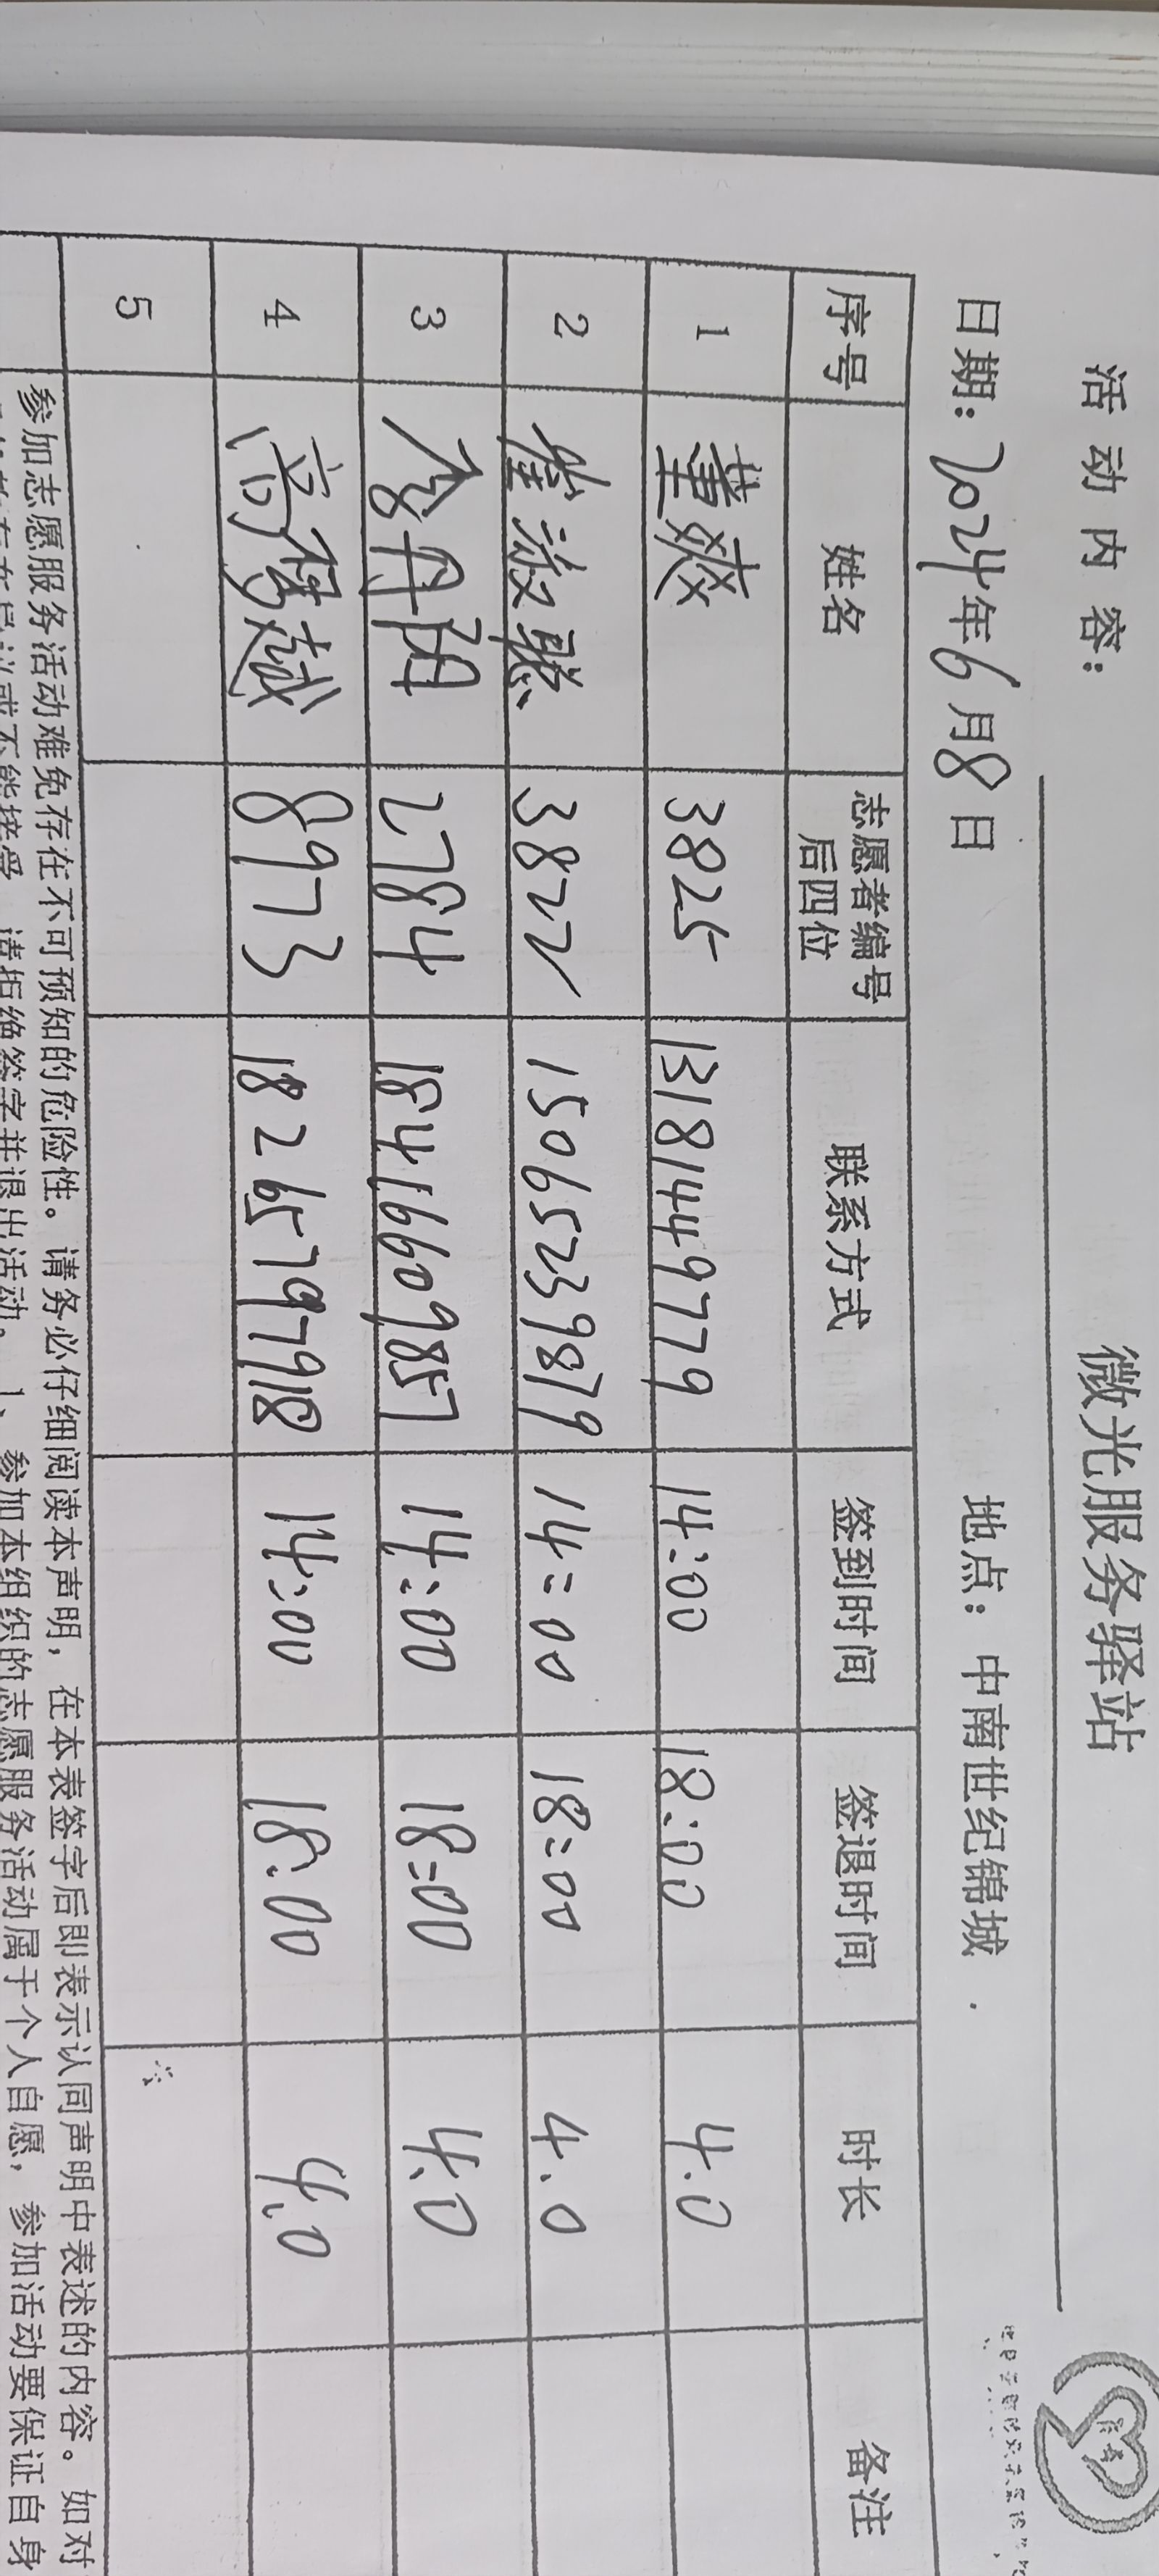 活动内容： 微光服务驿站
日期：2024年6月8日 地点：中南世纪锦城
序号 姓名 志愿者编号后四位 联系方式 签到时间 签退时间 时长 备注
1 董爽 3825 13181449779 14:00 18:00 4.0
2 3822 15065239879 14:00 18:00 4.0
3 丹阳 2784 18416609857 14:00 18:00 4.0
4 高梦越 8973 18265797918 14:00 18:00 4.0
5
参加志愿服务活动难免存在不可预知的危险性。请务必仔细阅读本声明，在本表签字后即表示认同声明中表述的内容。如对
或不能接受，请拒绝签字并退出活动。1、参加本组织的志愿服务活动属于个人自愿，参加活动要保证自身